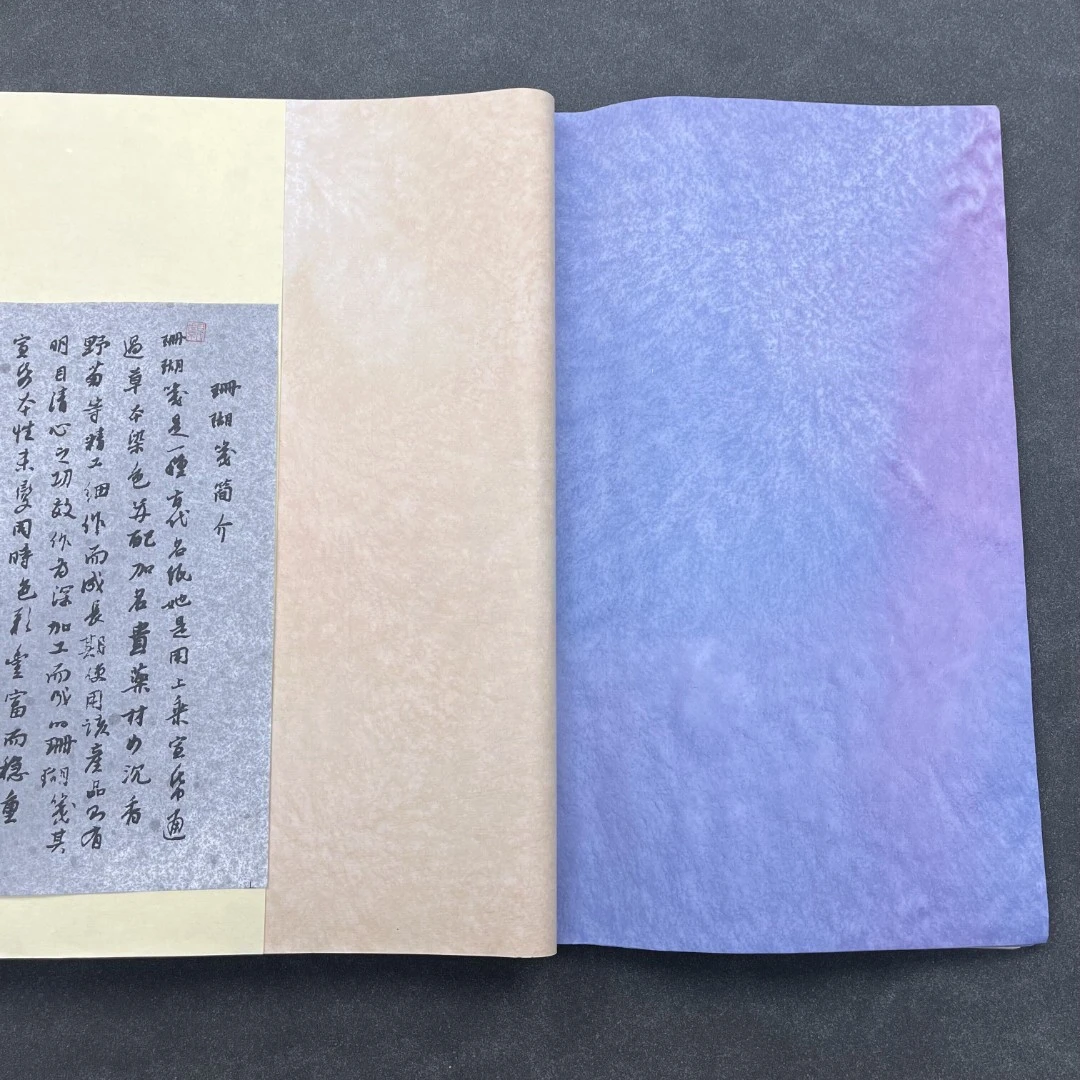 珊瑚箋简介
珊瑚箋是一種古代名纸她是用上乘宣帋通
過草本染色并配加名貴藥材如沉香
野菊等精工细作而成長期使用該產品有
明目清心之功效作为深加工而成的珊瑚箋其
宣帋本性未變同時色彩豐富而穩重